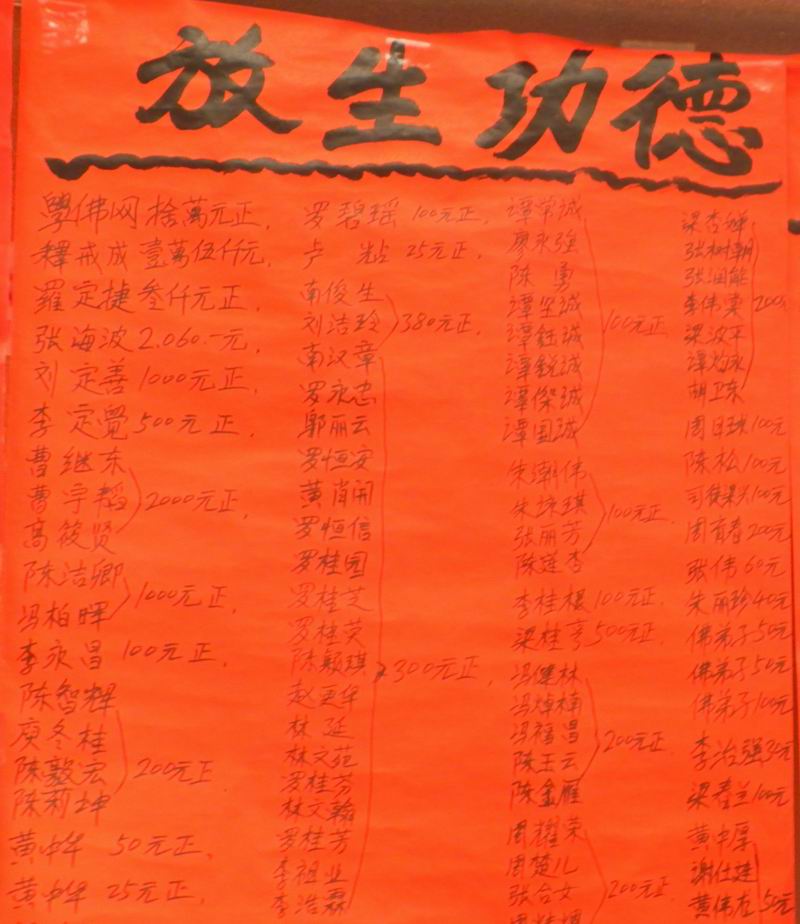 放生功德
學佛网 捨萬元正,
釋戒成 壹萬伍仟元,
羅定捷 叁仟元正,
张海波 2.060.一元,
刘定善 1000元正,
李定覺 500元正,
曹继东
曹宇韬 2000元正,
高筱贤
陈洁卿
冯柏晖 1000元正,
李永昌 100元正,
陈智輝
庾冬桂
陈毅宏 200元正
陈莉坤
黄中华 50元正,
黄中华 25元正,
罗碧瑶 100元正,
卢 粘 25元正,
南俊生
刘洁玲 380元正,
南汉章
罗永忠
郭丽云
罗恒安
黄肖开
罗恒信
罗桂园
罗桂芝
罗桂英
陈颖琪 300元正,
赵更华
林延
林文苑
罗桂芬
林文翰
罗桂芳
李祖业
李浩霖
譚常诚
廖永强
陈勇
譚坚诚 100元正
譚鈺诚
譚銳诚
譚傑诚
譚国诚
朱潮伟
朱琼琪 100元正
张丽芳
陈莲杏
李桂根 100元正,
梁桂亨 500元正,
冯健林
冯焯楠
冯福昌 200元正
陈玉云
陈金雁
周耀荣
周楚儿
张合女 200元正
梁杏婵
张树朝
张润能
李伟棠 200
梁波平
譚灼永
胡卫东
周日球 100元
陈松 100元
100元
周有春 200元
张伟 60元
朱丽珍 40元
佛弟子 50元
佛弟子 50元
佛弟子 100元
李治强 30元
梁春兰 100元
黄中厚
谢仕建
黄伟龙 50元